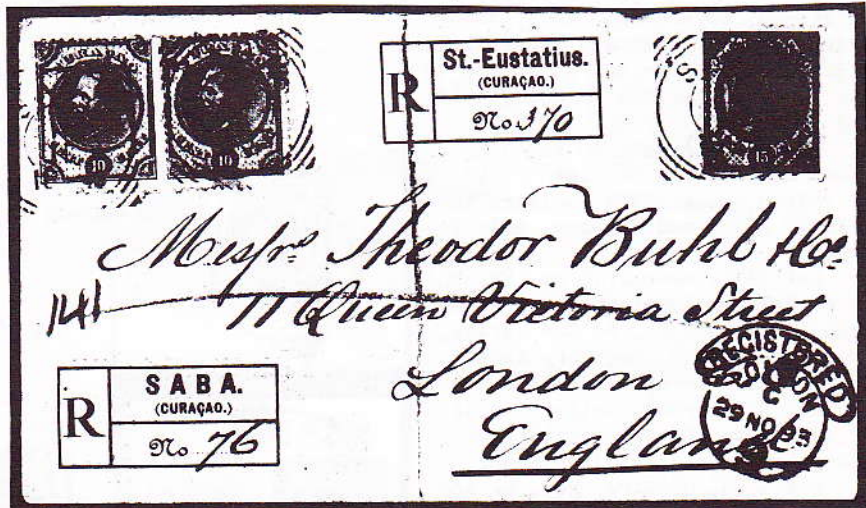 10
10
R
St.-Eustatius.
(CURAÇAO.)
No. 370
15
Messrs Theodor Buhl & Co
11 Queen Victoria Street
London
England
141
R
SABA.
(CURAÇAO.)
No 76
REGISTERED
LONDON
29 NO 93